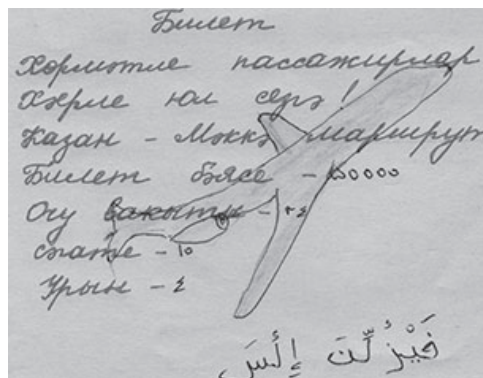 Билет
Хөрмәтле пассажирлар
Хәерле юл сезгә!
Казан - Мәккә маршрут
Билет бәясе - ۱۵۰۰۰۰
Очу вакыты - ۲٤
сәгате - ۱۵
Урын - ٤
فَيْزُلِّت إِلْسَ